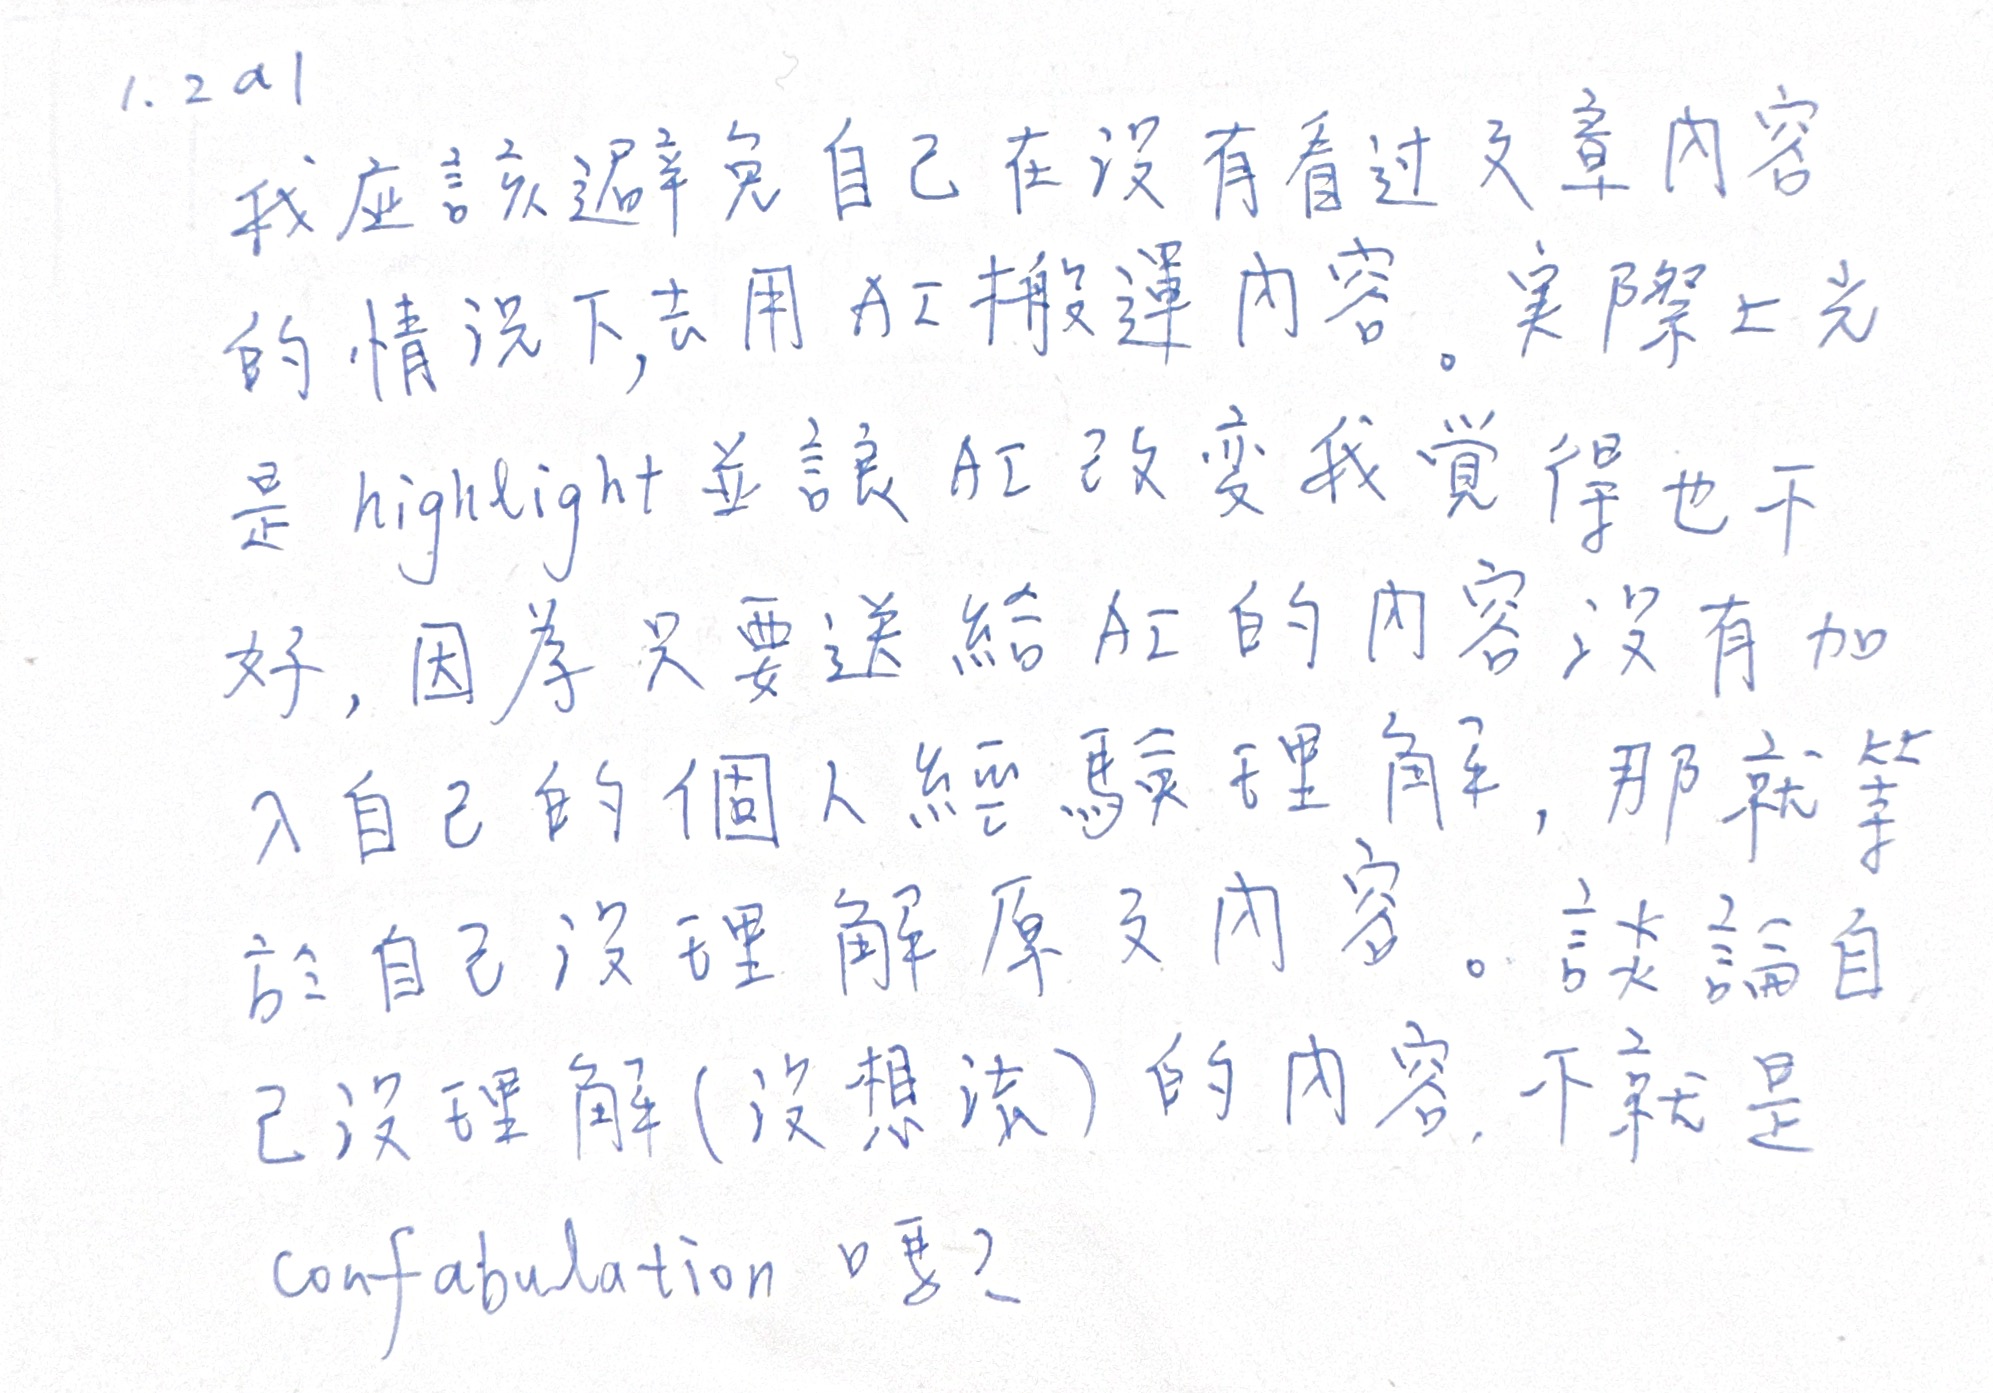 1.2a1
我应該避免自己在沒有看过文章內容
的情況下,去用AI搬運內容。実際上光
是highlight並讓AI改变我覚得也不
好,因為只要送給AI的內容沒有加
入自己的個人經驗理解,那就等
於自己沒理解原文內容。談論自
己沒理解(沒想法)的內容,不就是
confabulation嗎?